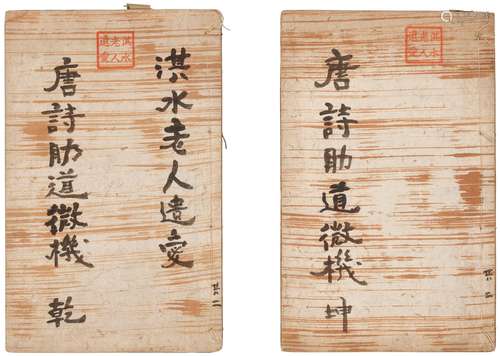 淇水老人遺愛
淇水老人遺愛
唐詩助道微機 乾
共二
淇水老人遺愛
唐詩助道微機 坤
共二